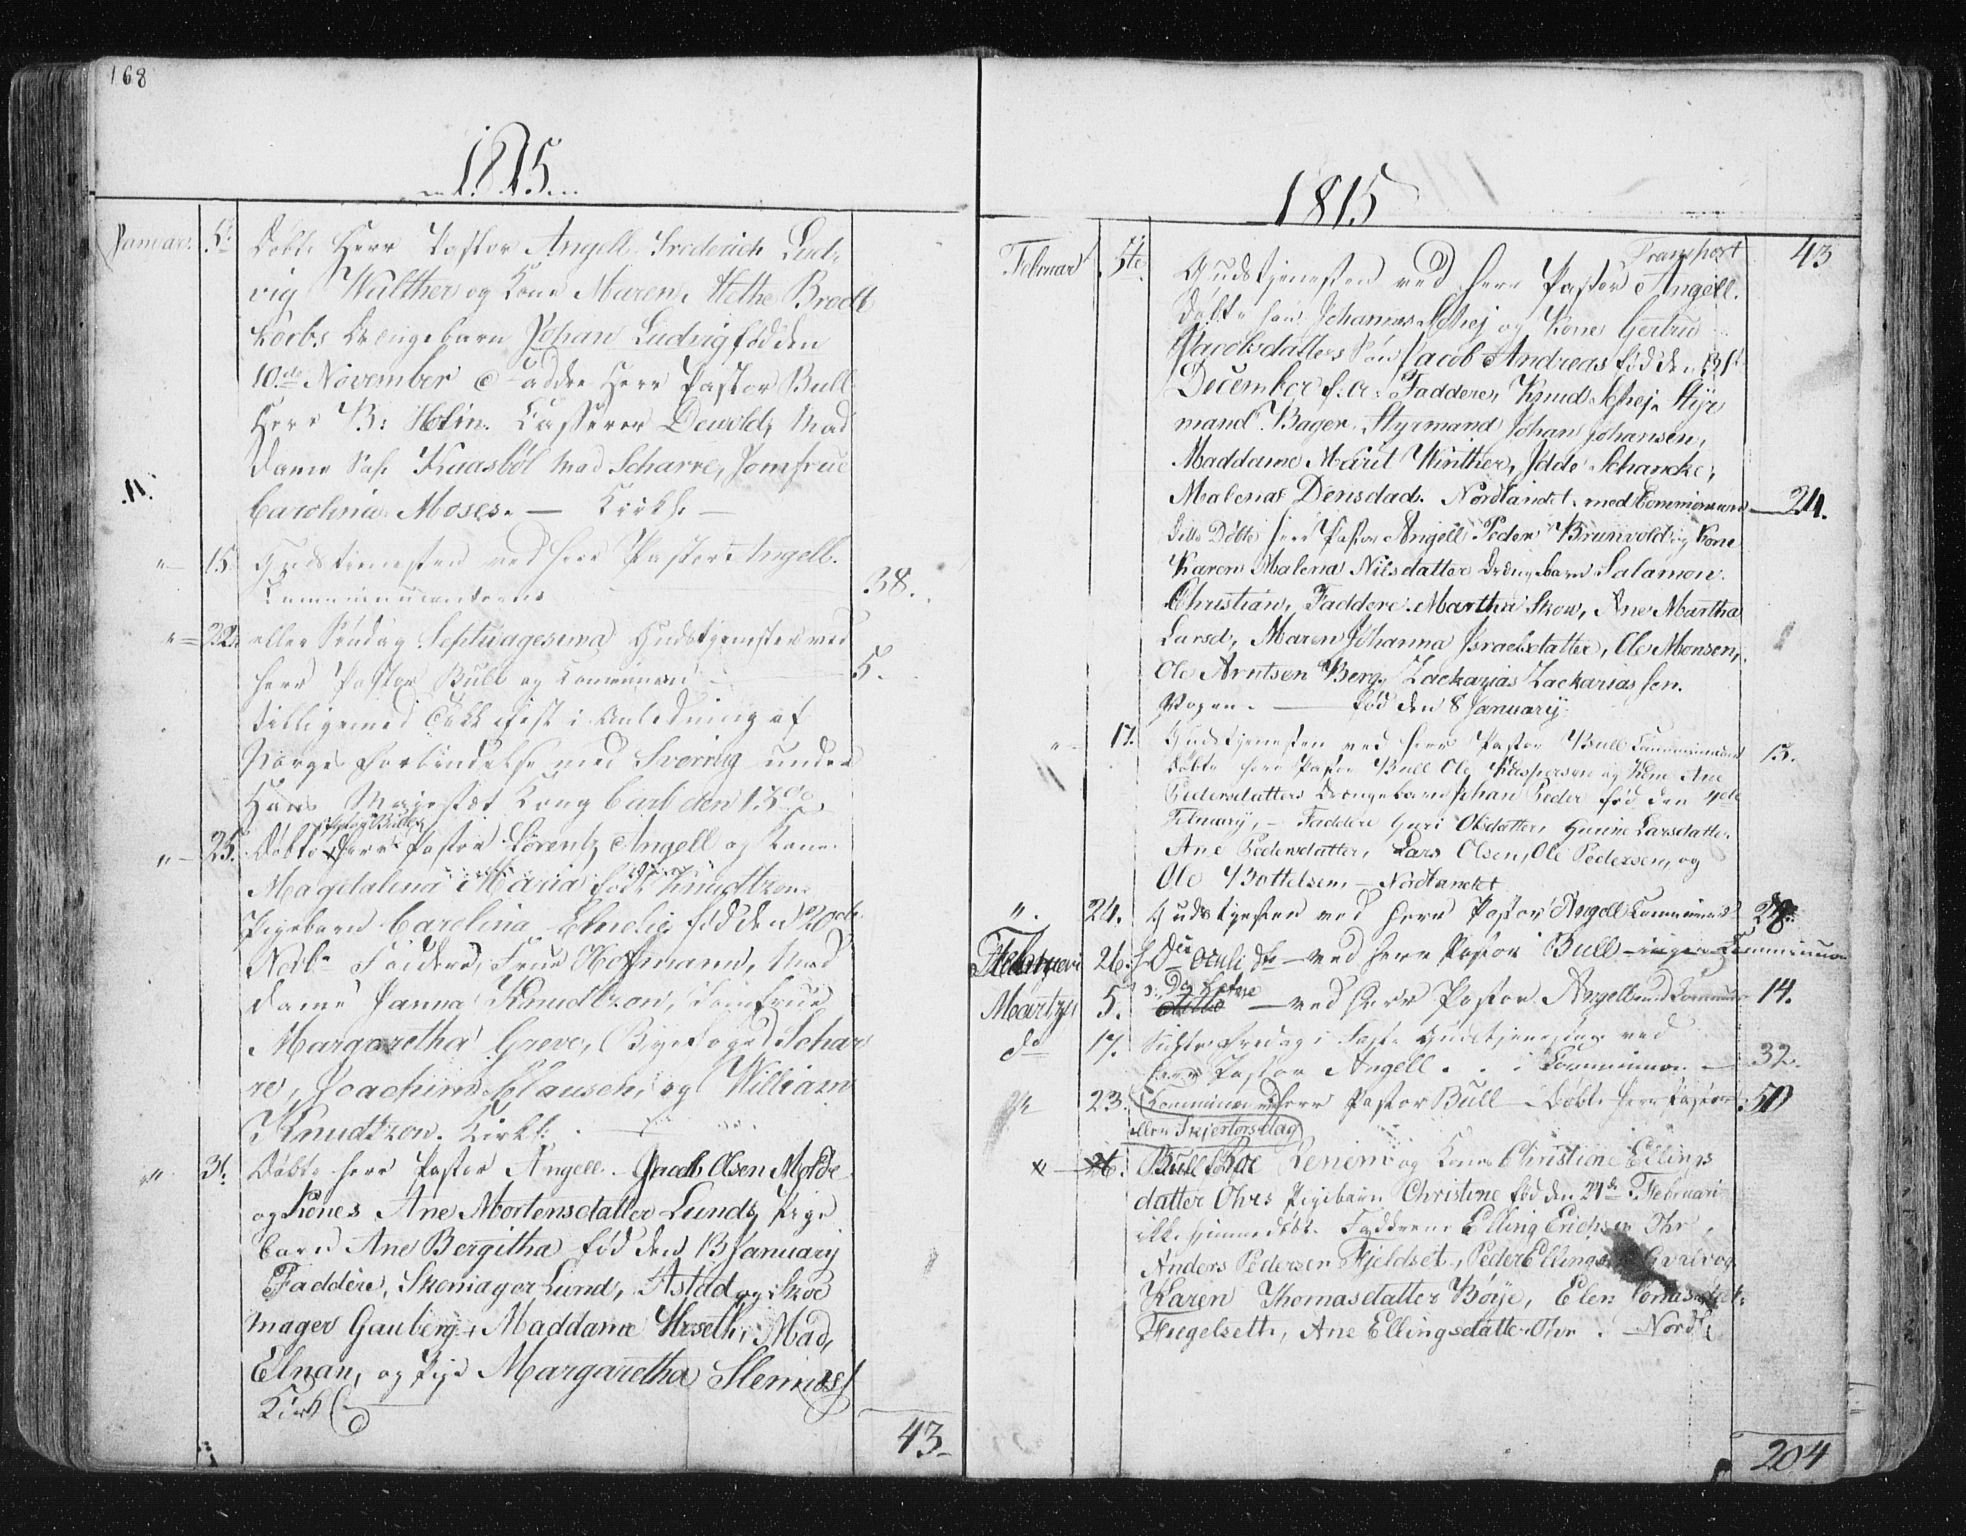 168
1815
Januar 5te Døbte Herr Pastor Angell Frederich Lud-
vig Walther og Kone Maren Hethe Brodt
Drengebarn Johan Ludvig født den
10de November Faddre Herr Pastor Bull
Herr B: Holm. Casserer Dewold, Mad
dame Kaasbøl Mad Scharre, Jomfrue
Carolina Moses. — Kirk. —
"— 15. Gudstienesten ved Herr Pastor Angell.
Communicanterne 38.
"= 22. eller Søndag Septuagesima Gudstjenesten ved
Herr Pastor Bull og Communion — 5.
tilligemed Takkefest i Anledning af
Norges Forbindelse med Sverrig under
Hans Majestæt Kong Carl den 13de
"— 25. Døbte Herr Pastor Lorentz Angell og Kone
Magdalena Maria født Knudtzon
Pigebarn Carolina Emelie født den 20de
Novbr Faddere, Frue Hoffmann, Mad
dame Janna Knudtzon, Jomfrue
Margaretha Greve, Byefoged Schar
re, Joachim Clausen, og William
Knudtzon. Kirk.
" 31. Døbte Herr Pastor Angell. Jacob Olsen Molde
og Kones Ane Mortensdatter Lunds Pige
barn Ane Bergitha født den 13 January
Faddere, Skomager Lund, Astad og Skoe
mager Gauberg, Maddame Heseth, Mad,
Elnan, og Pige Margaretha Slenнаes
Kirk
43
1815
Transport 43
Februar 5te Gudstjenesten ved Herr Pastor Angell.
Døbte han Johannes Schej og Kone Gertrud
Jacobsdatters Søn Jacob Andreas født den 31t
December f: a: Faddere, Knud Schej, Styr
mand Bager, Styrmand Johan Johansen,
Maddame Marit Winther, Idde Schancke,
Malena Densdad. Nordlandet. med Communion — 24.
Dito Døbte Herr Pastor Angell Peder Brunvold og Kone
Karen Malena Nilsdatter Drengebarn Salamon
Christian, Faddere Martha Skow, Ane Martha
Larsd, Maren Johanna Israelsdatter, Ole Monsen,
Ole Arntsen Berg, Zackarias Zackariassen.
Vogen. — født den 8 January
" 17. Gudstjenesten ved Herr Pastor Bull Communicant 15.
Døbte Herr Pastor Bull Ole Kaspersen og Kone Ane
Pedersdatters Drengebarn Johan Peder født den 4de
February, — Faddere Guri Olsdatter, Gunine Larsdatter
Ane Pedersdatter, Lars Olsen, Ole Pedersen, og
Ole Bottelsen, — Nordlandet
". 24. Gudstjesten ved Herr Pastor Angell Communic 28.
Februari 26. Oculi — ved Herr Pastor Bull — ingen Communion
Martzi 5. ditto — ved Herr Pastor Angell med Commun 14.
do 17. Sidste Fredag i Faste Gudstjenesten ved
Herr Pastor Angell. . i Communion — 32.
23. Communion ved Herr Pastor Bull — Døbte Herr Pastor 50
eller Skjertorsdag
26. Bull og Kone Christiane Ellings
datter Ohrs Pigebarn Christine født den 24de Februari
ikke hjemmedøbt. Fadderne Elling Erichsen Ohr,
Anders Pedersen Fjeldset, Peder Ellings og
Karen Thomasdatter Böije, Elen
Fugelseth, Ane Ellingsdatter Ohr. — Nordl
204